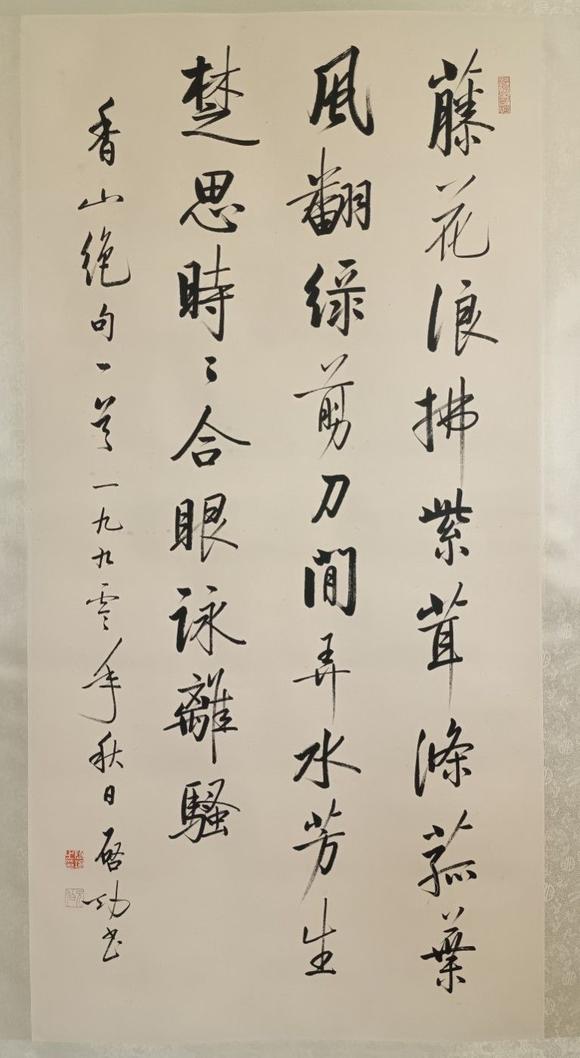 藤花浪拂紫茸條菰葉
風翻綠剪刀閒弄水芳生
楚思時〻合眼詠離騷
香山絕句一首一九九零年秋日啓功書